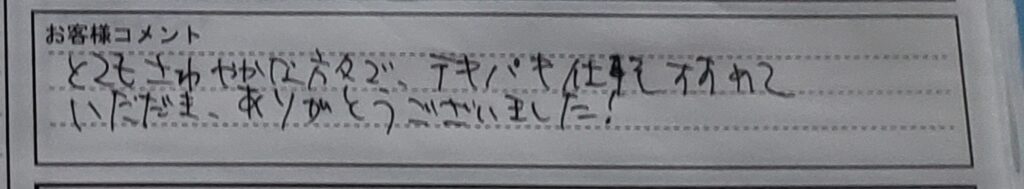 お客様コメント
とてもさわやかな方々で、テキパキ仕事をすすめて
いただき、ありがとうございました!